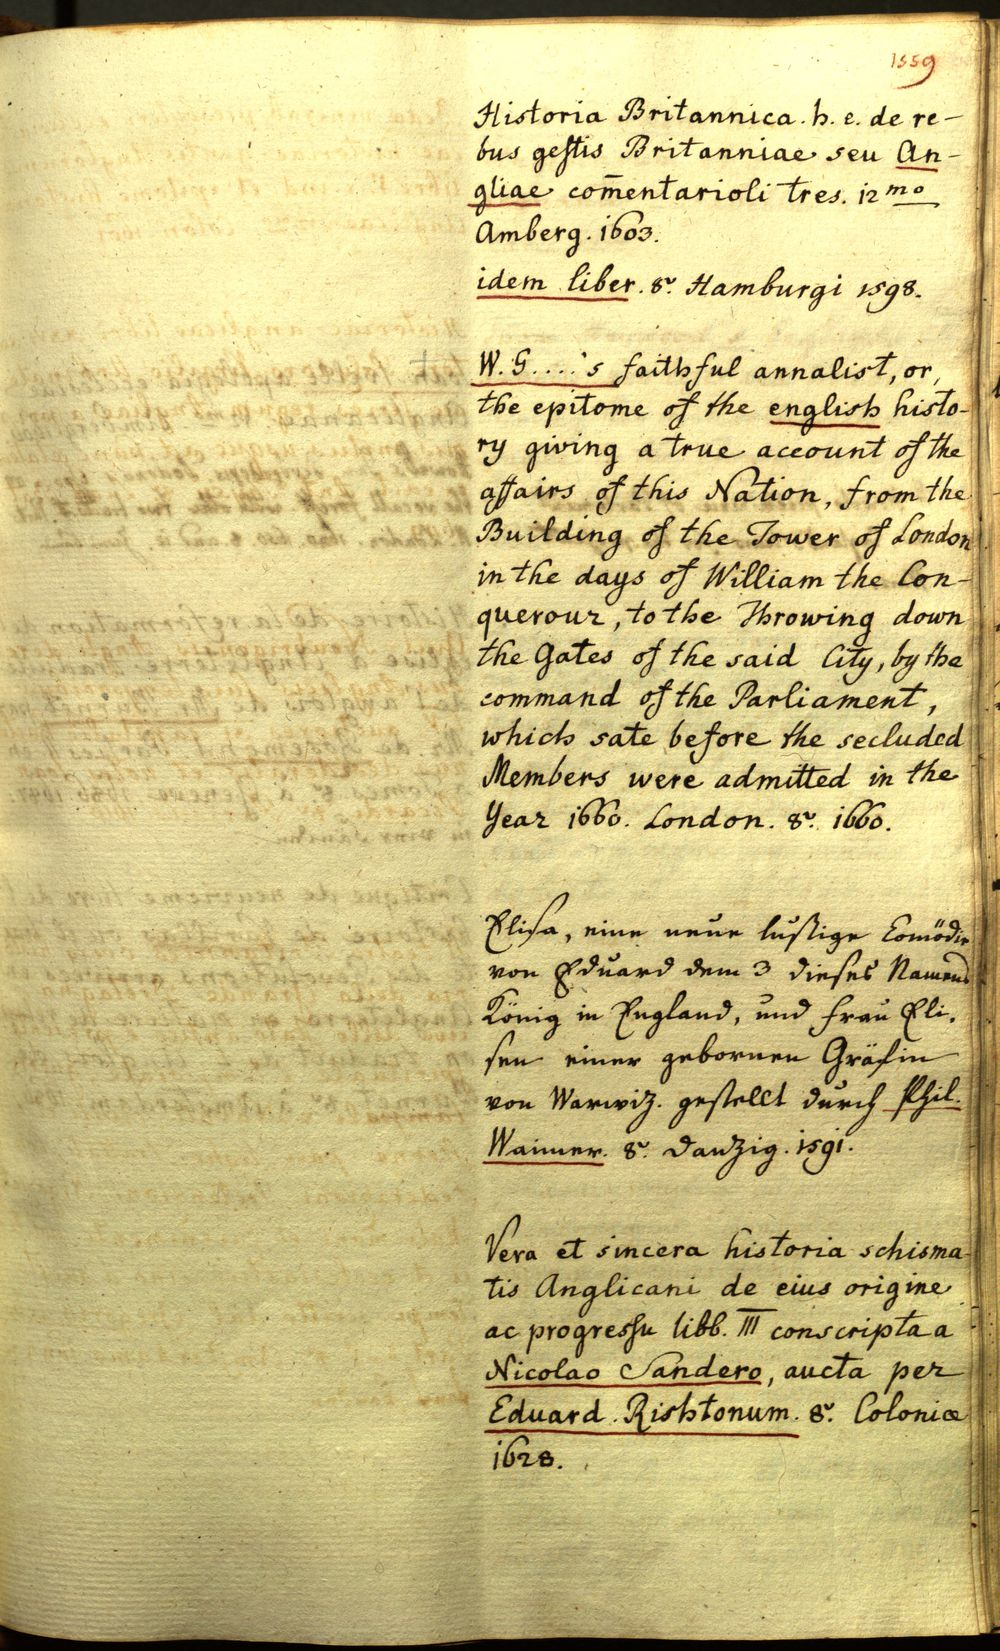 1559
Historia Britannica. h. e. de re-
bus gestis Britanniae seu An-
gliae com̄entarioli tres. 12mo
Amberg. 1603.
idem liber. 8v. Hamburgi 1598.
W. G....'s faithful annalist, or,
the epitome of the english histo-
ry giving a true account of the
affairs of this Nation, from the
Building of the Tower of London
in the days of William the Con-
querour, to the Throwing down
the Gates of the said City, by the
command of the Parliament,
which sate before the secluded
Members were admitted in the
Year 1660. London. 8v. 1660.
Elisa, eine neue lustige Comödie
von Eduard dem 3 dieses Namens
König in England, und Frau Eli-
sen einer gebornen Gräfin
von Warwitz. gestellt durch Phil.
Waimer. 8v. Danzig. 1591.
Vera et sincera historia schisma-
tis Anglicani de eius origine
ac progressu libb. III conscripta a
Nicolao Sandero, aucta per
Eduard. Rishtonum. 8v. Coloniæ
1628.